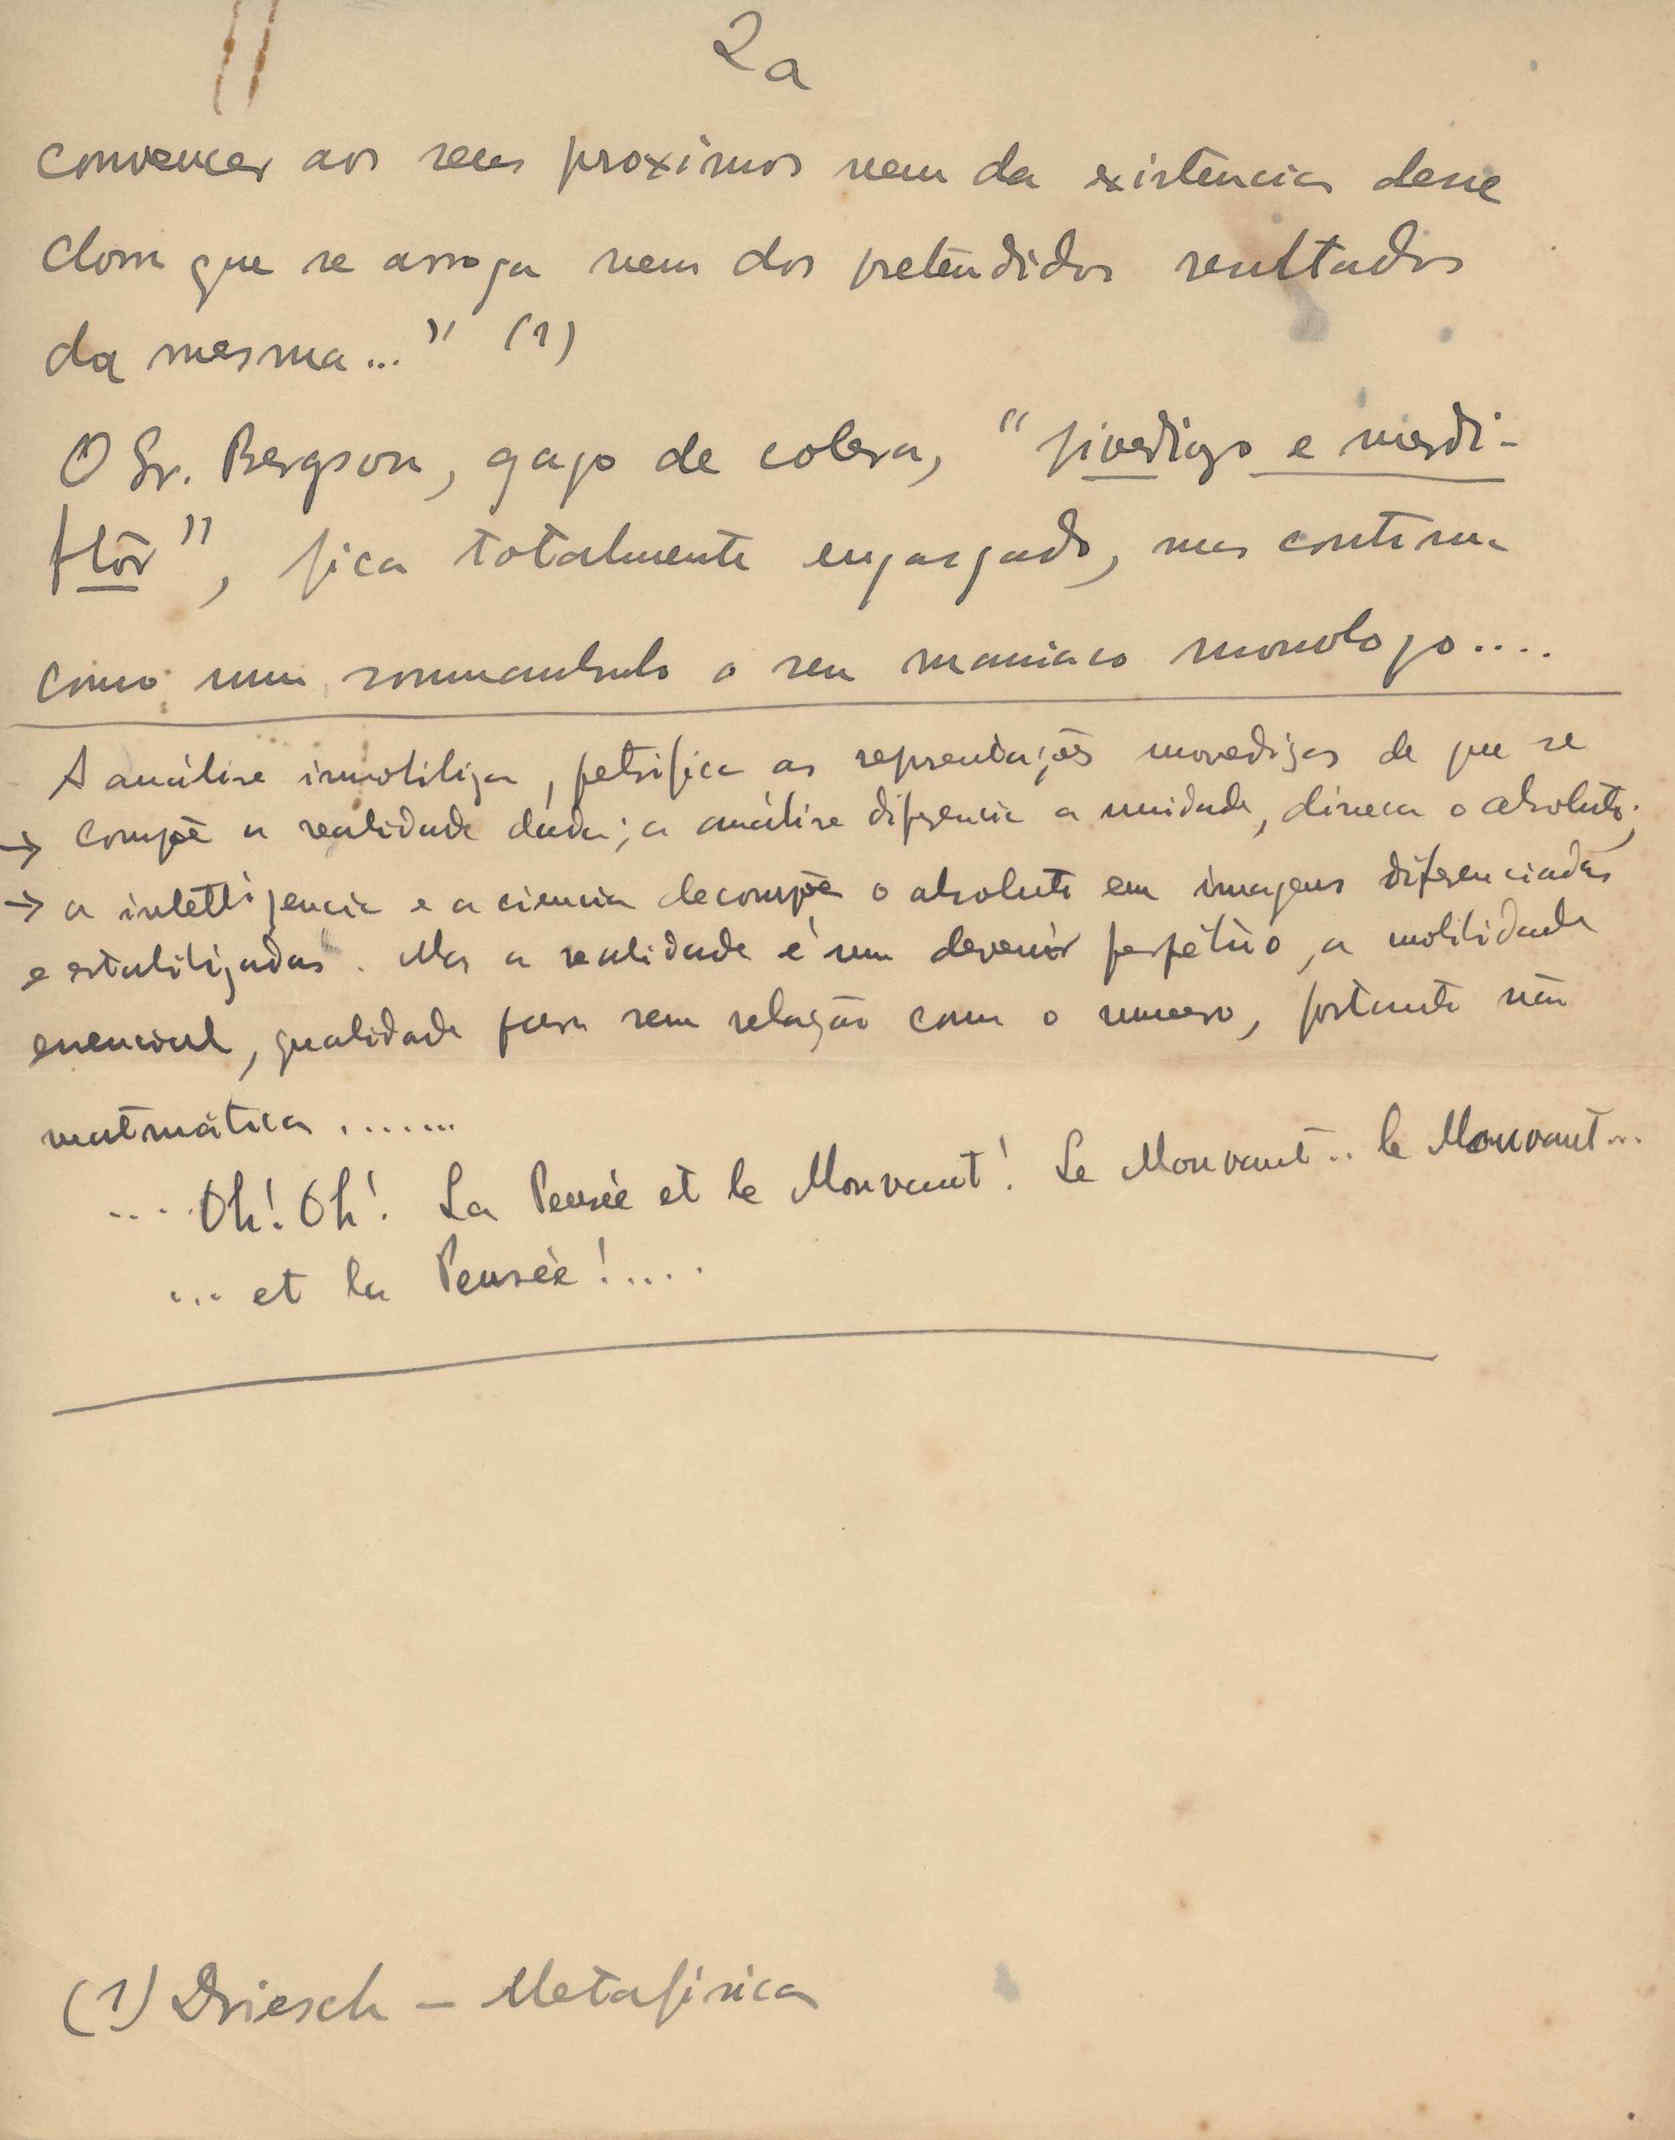 2a
convencer aos seus proximos nem da existencia desse
dom que se arroga nem dos pretendidos resultados
da mesma..." (1)
O Sr. Bergson, gago de colera, "
flôr", fica totalmente engasgado, mas continua
como um somnambulo o seu maniaco monologo....
A análise immobiliza, petrifica as represntações movediças de que se
→ compõe a realidade dada; a análise diferencia a unidade, disseca o absoluto;
→ a intelligencia e a ciencia decompõe o absoluto em imagens diferenciadas
e estabilizadas. Mas a realidade é um devenir perpétuo, a mobilidade
essencial, qualidade pura sem relação com o numero, portanto não
matmática .......
.... Oh! Oh! La Pensée et le Mouvant! Le Mouvant .. le Mouvant...
... et la Pensée!....
(1) Driesch – Metafisica